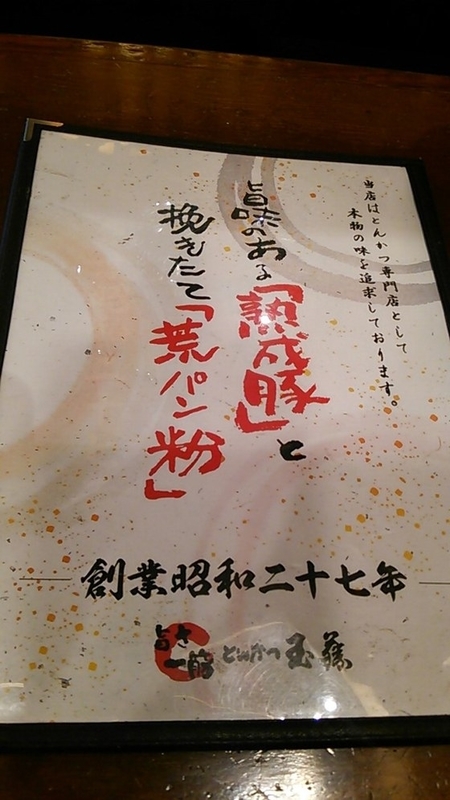 当店はとんかつ専門店として
本物の味を追求しております。
旨味のある「熟成豚」と
挽きたて「荒パン粉」
創業昭和二十七年
旨さ
一筋
とんかつ玉藤